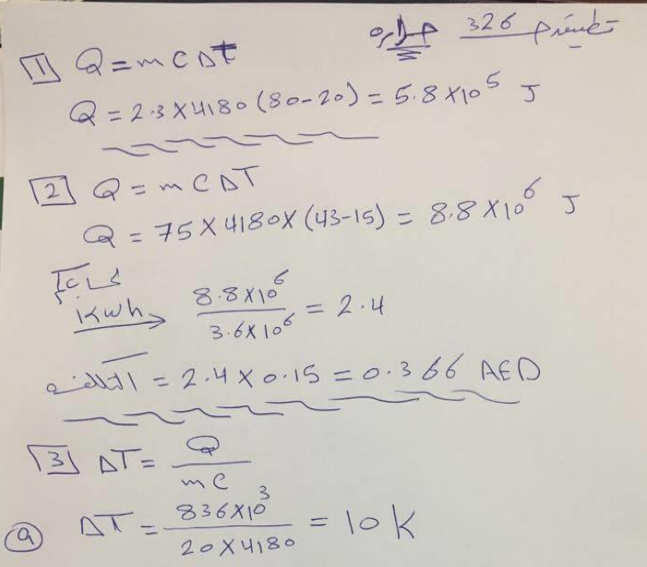 تطبيق 326 حرارة
1 Q = m C Δt
Q = 2.3 × 4180 (80-20) = 5.8 × 10⁵ J
2 Q = m C ΔT
Q = 75 × 4180 × (43-15) = 8.8 × 10⁶ J
Kwh → 8.8 × 10⁶ / 3.6 × 10⁶ = 2.4
التكلفة = 2.4 × 0.15 = 0.366 AED
3 ΔT = Q / mC
a ΔT = 836 × 10³ / 20 × 4180 = 10 K